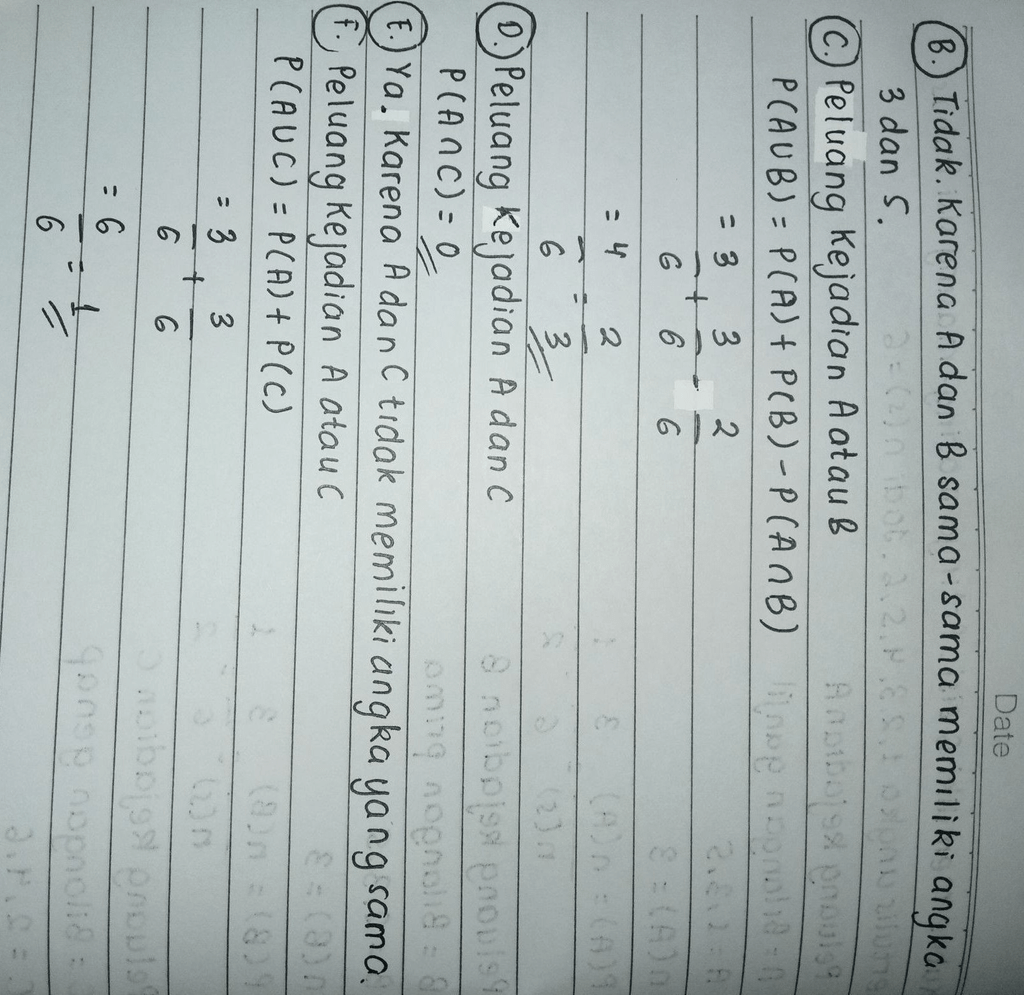 Date
B. Tidak. Karena A dan B sama-sama memiliki angka
3 dan 5.
C. Peluang Kejadian A atau B
P(A∪B) = P(A) + P(B) - P(A∩B)
= 3/6 + 3/6 - 2/6
= 4/6 = 2/3
D. Peluang Kejadian A dan C
P(A∩C) = 0
E. Ya. Karena A dan C tidak memiliki angka yang sama.
F. Peluang Kejadian A atau C
P(A∪C) = P(A) + P(C)
= 3/6 + 3/6
= 6/6 = 1